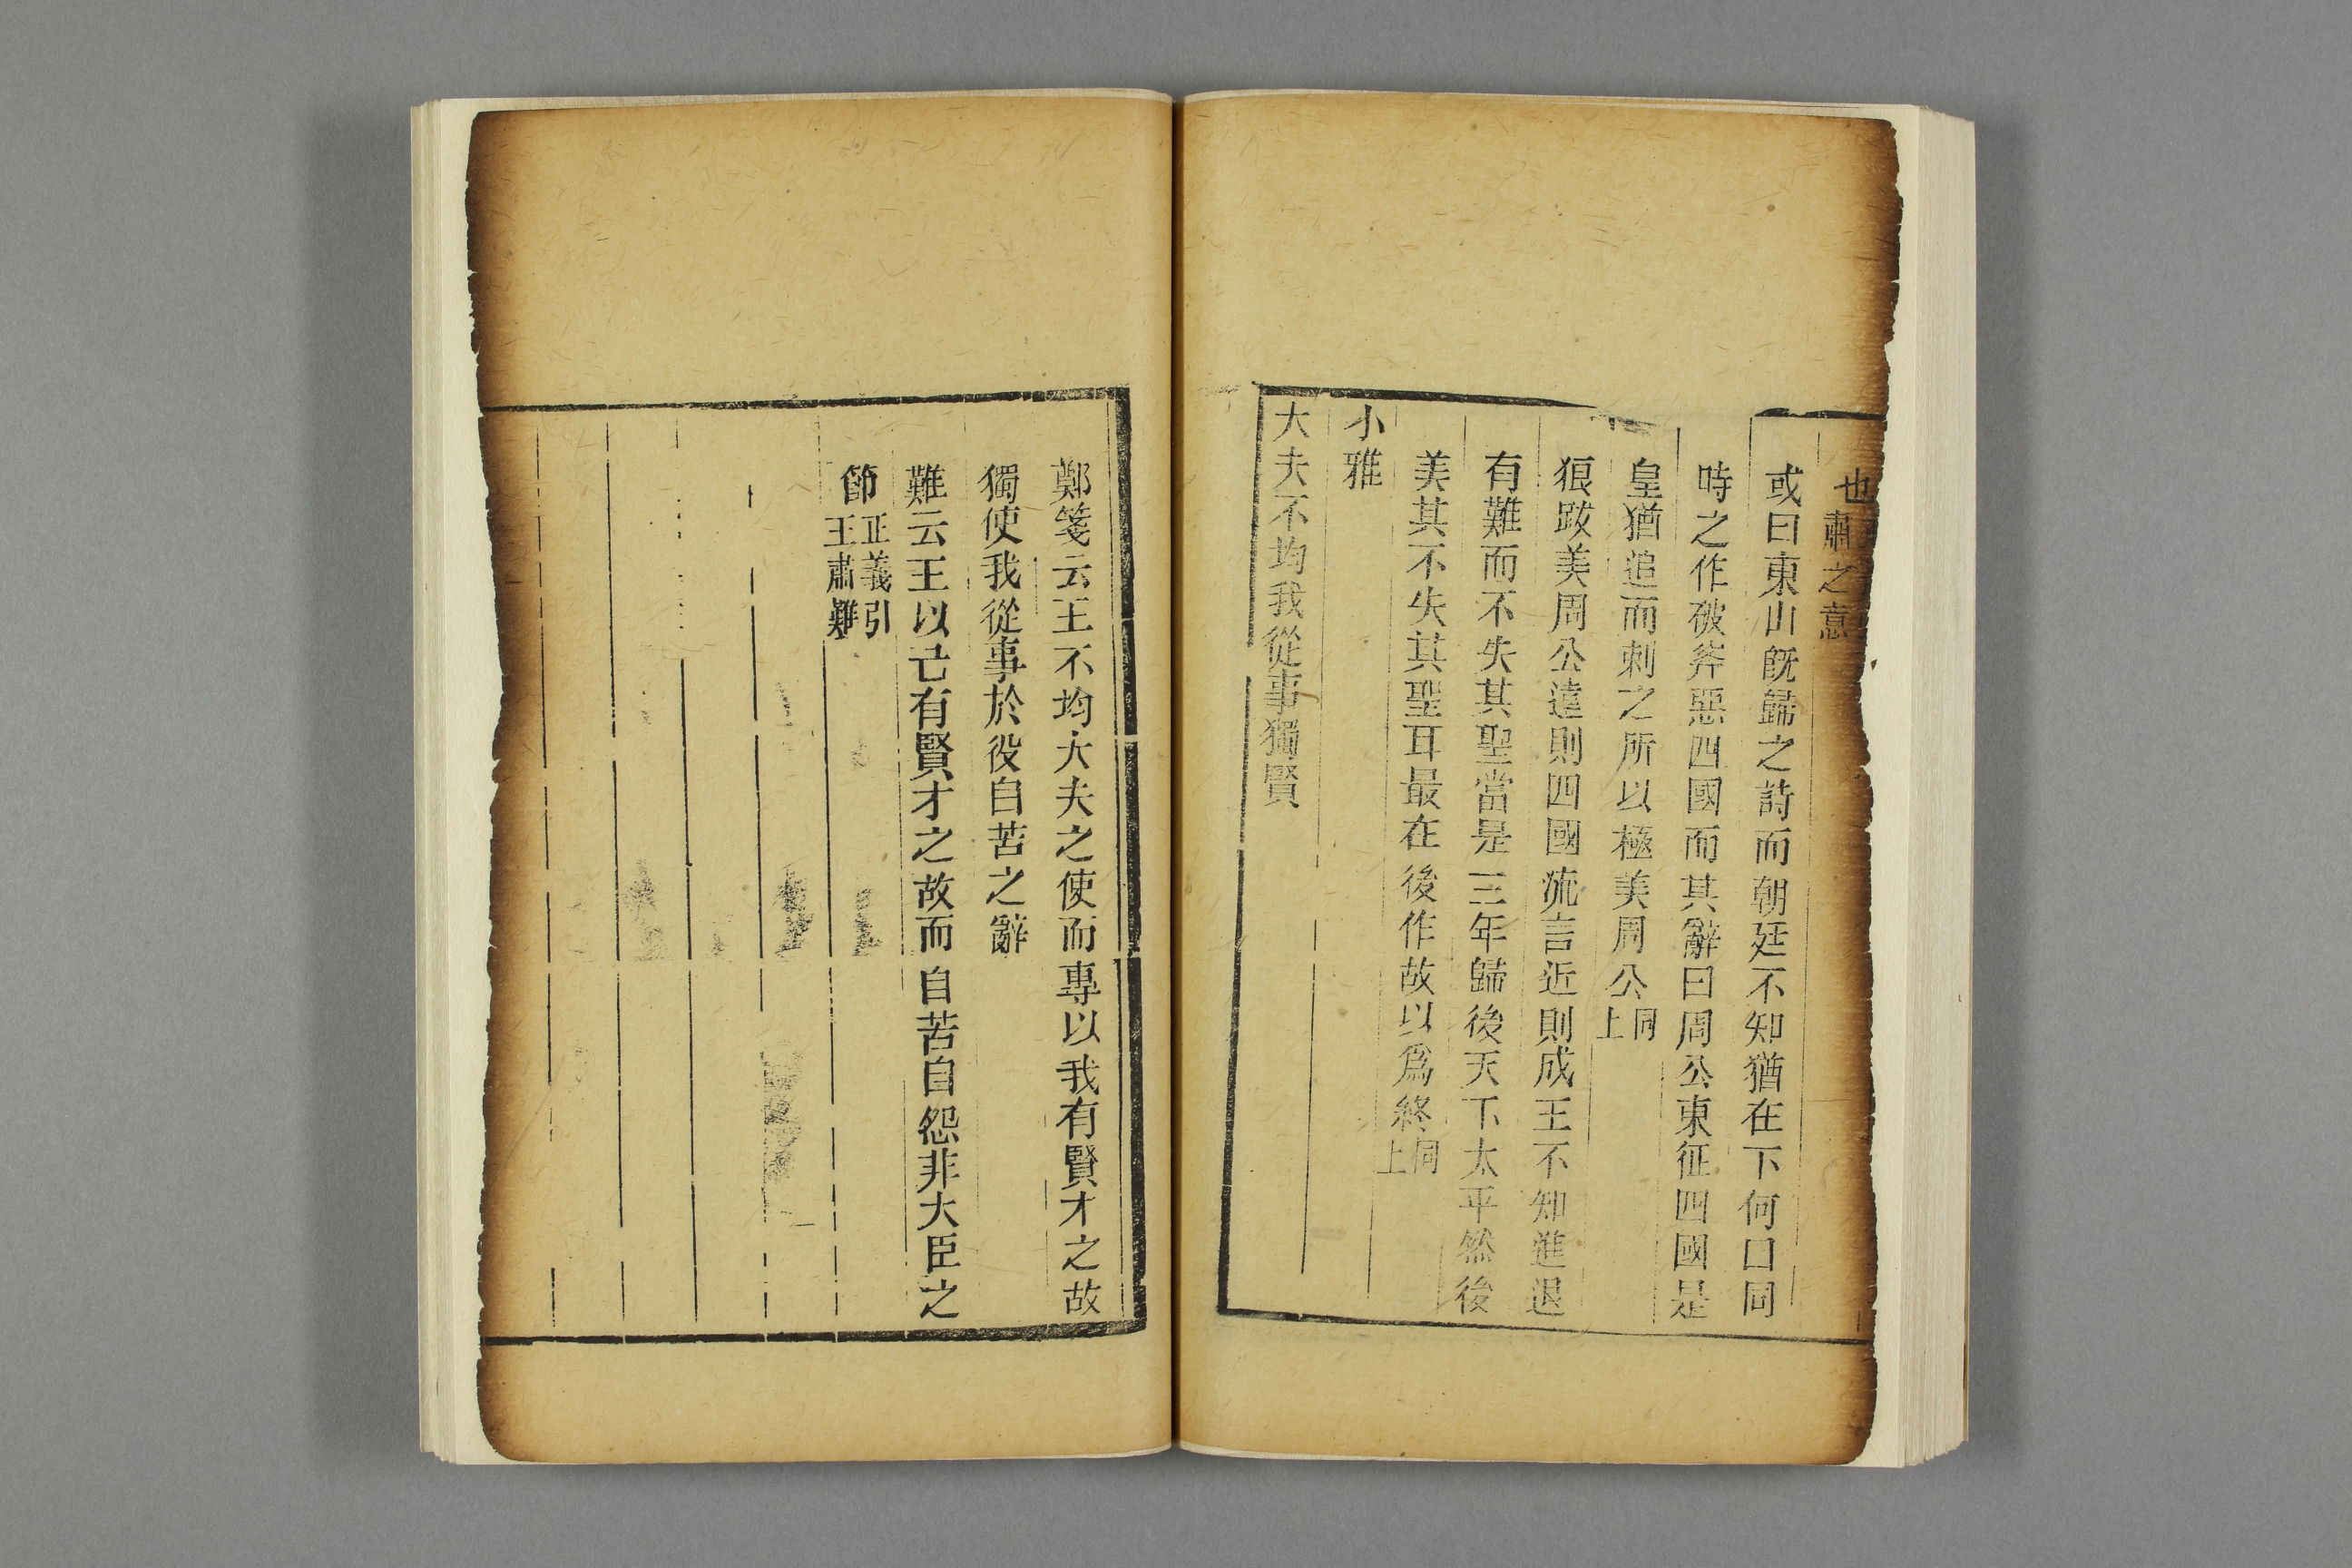 也肅之意
或曰東山旣歸之詩而朝廷不知猶在下何口同
時之作破斧惡四國而其辭曰周公東征四國是
皇猶追而刺之所以極美周公同上
狼跋美周公遠則四國流言近則成王不知進退
有難而不失其聖當是三年歸後天下太平然後
美其不失其聖耳最在後作故以爲終同上
小雅
大夫不均我從事獨賢
鄭箋云王不均大夫之使而專以我有賢才之故
獨使我從事於役自苦之辭
難云王以己有賢才之故而自苦自怨非大臣之
節正義引王肅難